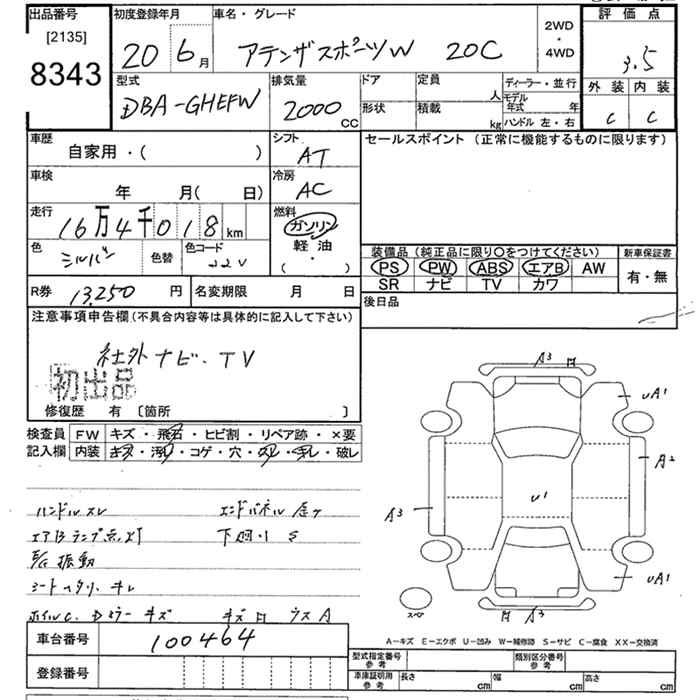 出品番号 初度登録年月 車名・グレード 2WD・4WD 評価点
[2135]
8343
20 6月 アテンザスポーツW 20C 3.5
型式 排気量 ドア 定員 人 ディーラー・並行 外装 内装
DBA-GHEFW 2000CC 形状 積載 kg モデル年式 年 ハンドル 左・右 C C
車歴 自家用・( ) シフト AT セールスポイント (正常に機能するものに限ります)
車検 年 月( 日) 冷房 AC
走行 16万4千018km 燃料 ガソリン 軽油 ( ・ )
色 シルバー 色替 色コード 22V
装備品 (純正品に限り〇をつけてください) 新車保証書
PS PW ABS エアB AW 有・無
SR ナビ TV カワ
R券 13,250円 名変期限 月 日 後日品
注意事項申告欄(不具合内容等は具体的に記入して下さい)
社外ナビ・TV
初出品
修復歴 有 〔箇所 〕
検査員 FW キズ・飛石・ヒビ割・リペア跡・×要
記入欄 内装 キズ・汚れ・コゲ・穴・スレ・キレ・破レ
ハンドルスレ
エアBランプ
下廻り S
E/G 振動
ホイルC. Dミラーキズ
A3
UA1
A2
U1
A3
UA1
A3
スペ
A-キズ E-エクボ U-凹み W-補修跡 S-サビ C-腐食 XX-交換済
車台番号 100464
登録番号
型式指定番号 参考 類別区分番号 参考
車庫証明用 参考 長さ cm 幅 cm 高さ cm